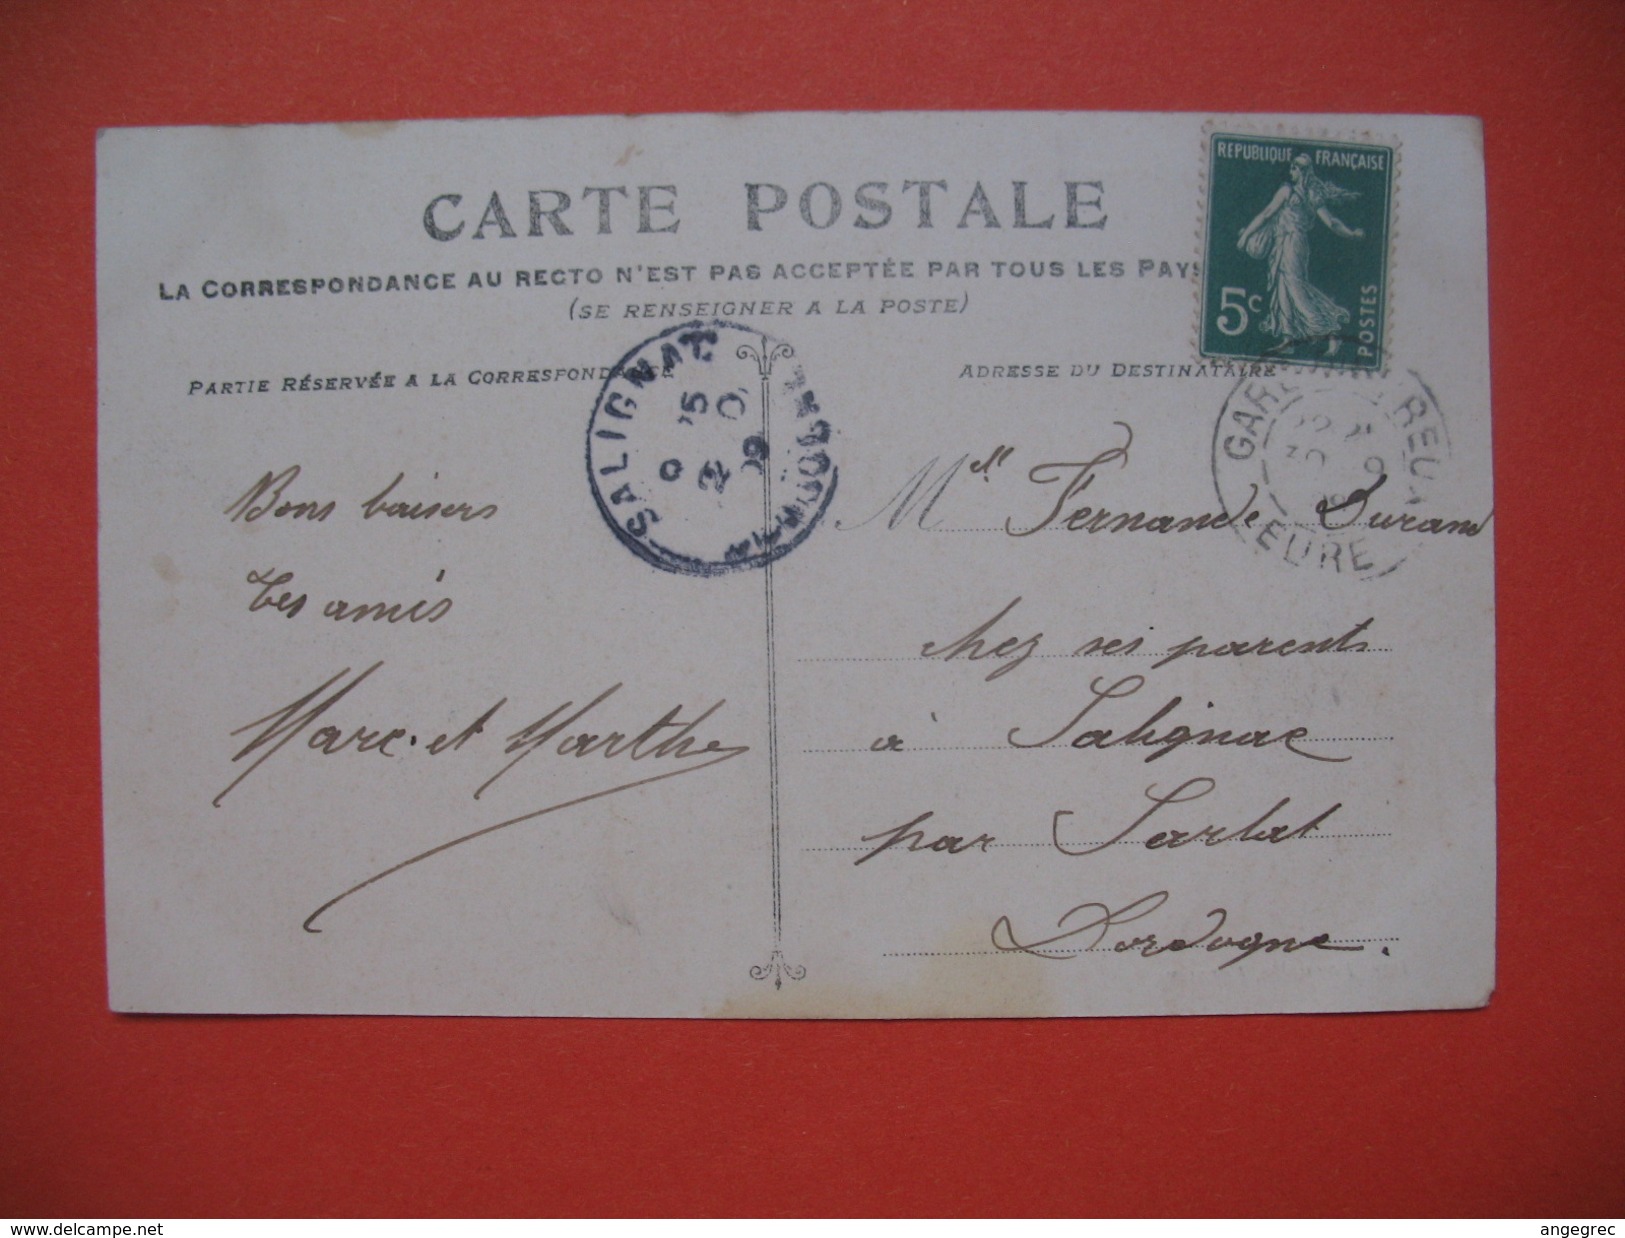 CARTE POSTALE
LA CORRESPONDANCE AU RECTO N'EST PAS ACCEPTÉE PAR TOUS LES PAYS
(SE RENSEIGNER A LA POSTE)
REPUBLIQUE FRANÇAISE
5c
POSTES
PARTIE RÉSERVÉE A LA CORRESPONDANCE
ADRESSE DU DESTINATAIRE
SALIGNAC
GARE
EURE
Bons baisers
Tes amis
Marc et Marthe
Mlle Fernande Durand
chez ses parents
à Salignac
par Sarlat
Dordogne.
delcampe.net
angegrec